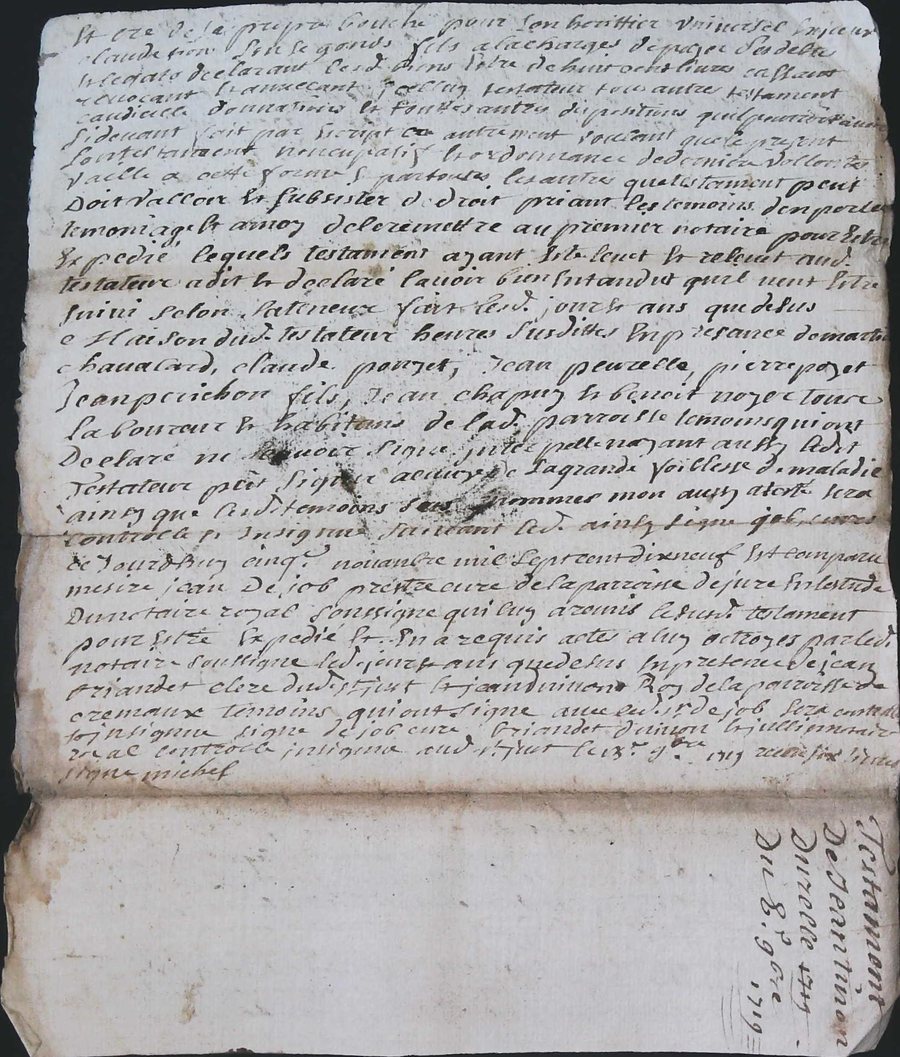 Et cre de sa propre bouche pour son herittier universel
claude son segond fils a la charges de payer ses debtes
et legats declarant lesd. biens estre de huit cent livres cassant
revocant et annullant icelluy testateur tous autres testament
caudicille donnations et touttes autres dispositions quil pourroit avoir
sidevant fait par escript ou autrement voulant que le present
son testament noncupatif et ordonnance de derniere vollontes
vaille a cette forme et par toutes les autres que testament peut
Doit valloir et subsister de droit priant les temoins den porter
temoniage et a moy de le remettre au premier notaire pour estre
Expedié, lequels testament ayant este leut et releut aud.
testateur a dit et declaré lavoir bien entandut quil veut estre
suivi selon sa teneur fait lesd. jour et ans que desus
e Maison dud. testateur heures susdittes En presance de martin
chavalard, claude ponzet, Jean peurelle, pierre poyet
Jean perichon fils, Jean chapuy et benoit noyer tous
laboureur et habitans de lad. parroisse temoins qui ont
Declaré ne scavoir signe interpellé nayant aussy ledit
Testateur peu signer a cause de sa grande foillesse de maladie
ainsy que lesd. temoins sus nommes mon aussy atesté sera
controlle et insignue suivant led. ainsy signe job, cures
ce jourdhuy cinq.e novanbre mil sept cent dixneuf est comparu
mesire jean De job prestre cure de la parroisse de jure En lestude
Du notaire royal soussigne qui luy a remis le susd. testament
pour Estre Expedié et En a requis actes a luy octroyes par led.
notaire soussigne led. jour et ans que desus En presence de jean
briandet clerc dud. st just et jean duivon Roy de la parroisse de
cremaux temoins qui ont signe avec led. sr. de job sera controlle
et insignue signe de job cure, briandet duivon et jullien notaire
real controlle insignue aud. st just le ix.e 9bre 1719 receu six livres
signe michel
Testamont
De Jean timon
Durelle 1719
Du 8.e 9bre
1719